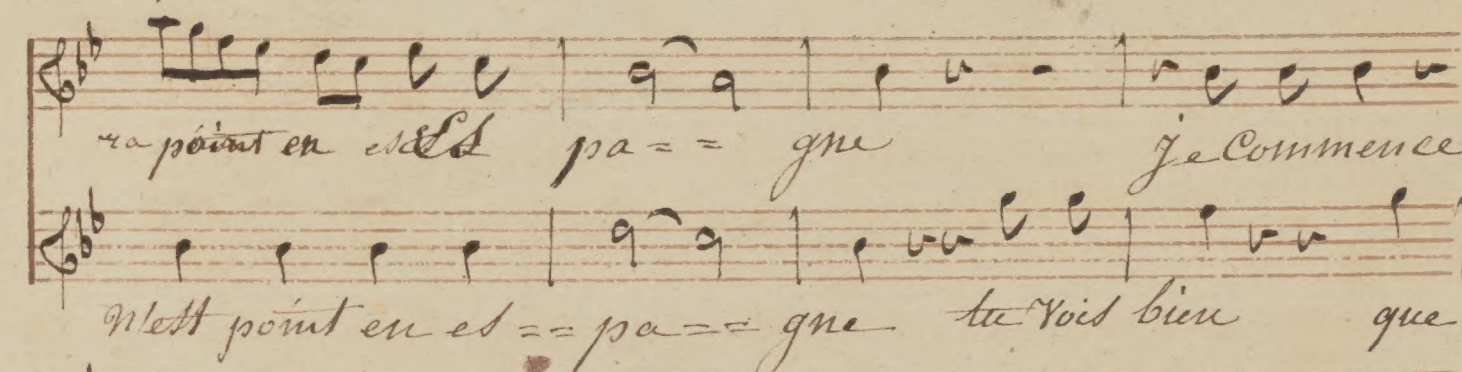 ra point en es pa = = gne je Commence
n'est point en es = = pa = = gne tu Vois bien que